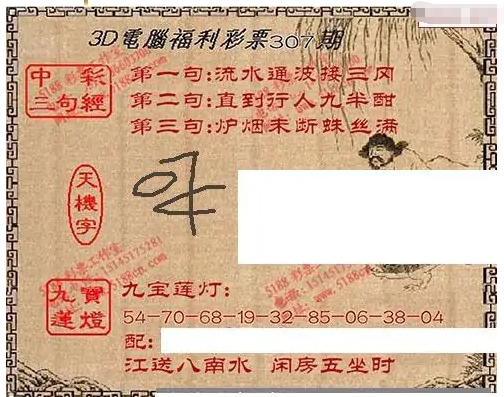 3D電腦福利彩票307期
中彩
三句經
第一句:流水通波接三冈
第二句:直到行人九半酣
第三句:炉烟未断蛛丝满
天機字
九寶
蓮燈
九宝莲灯:
54-70-68-19-32-85-06-38-04
配:
江送八南水 闲房五坐时